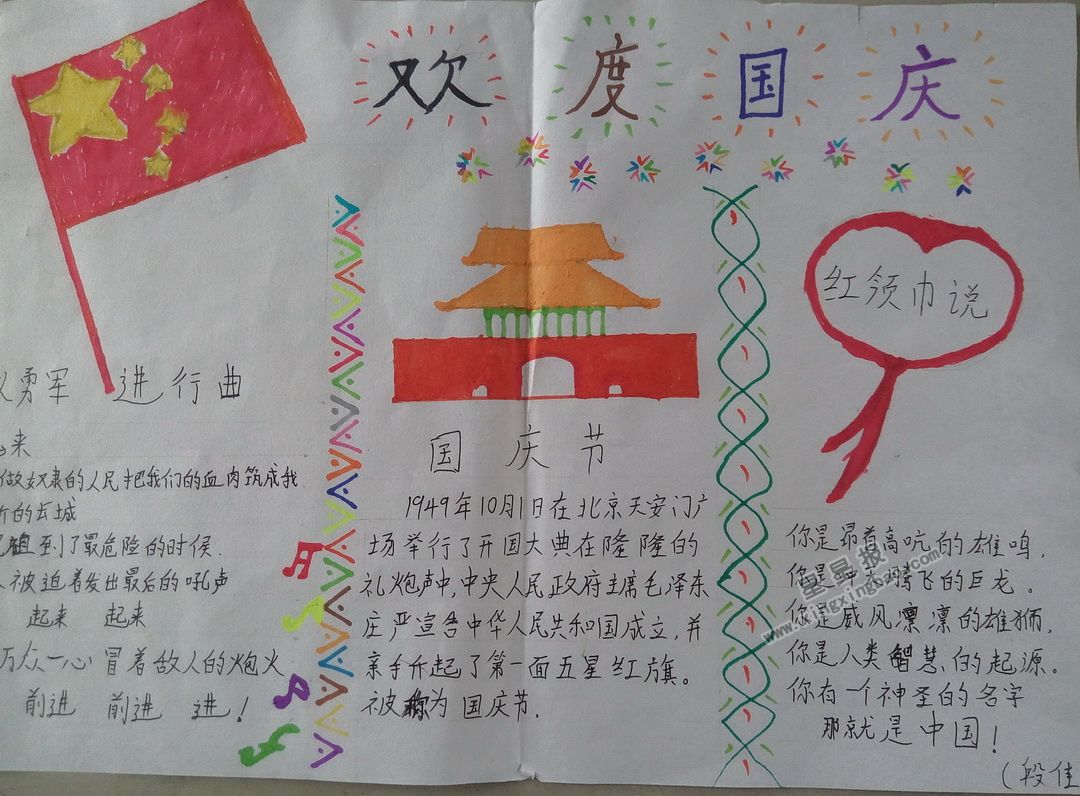 欢度国庆
勇军 进行曲
来
做奴隶的人民把我们的血肉筑成我
的长城
到了最危险的时候.
被迫着发出最后的吼声
起来 起来
万众一心冒着敌人的炮火
前进 前进 进!
国庆节
1949年10月1日在北京天安门广
场举行了开国大典在隆隆的
礼炮声中,中央人民政府主席毛泽东
庄严宣告中华人民共和国成立,并
亲手升起了第一面五星红旗。
被称为国庆节.
红领巾说
你是昂着高吭的雄鸣,
你是 腾飞的巨龙。
你是威风凛凛的雄狮,
你是人类智慧的起源。
你有一个神圣的名字
那就是中国!
(段佳
星星报
www.xingxingbao.com